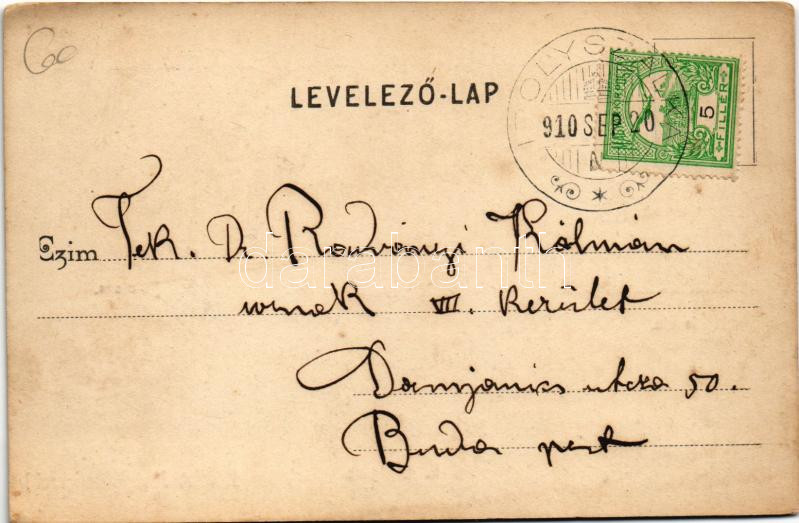 60
LEVELEZŐ-LAP
910 SEP 20
5
FILLÉR
Czim Tek. Dr Radványi Kálmán
urnak VII. kerület
Damjanics utcza 50.
Budapest
darabanth